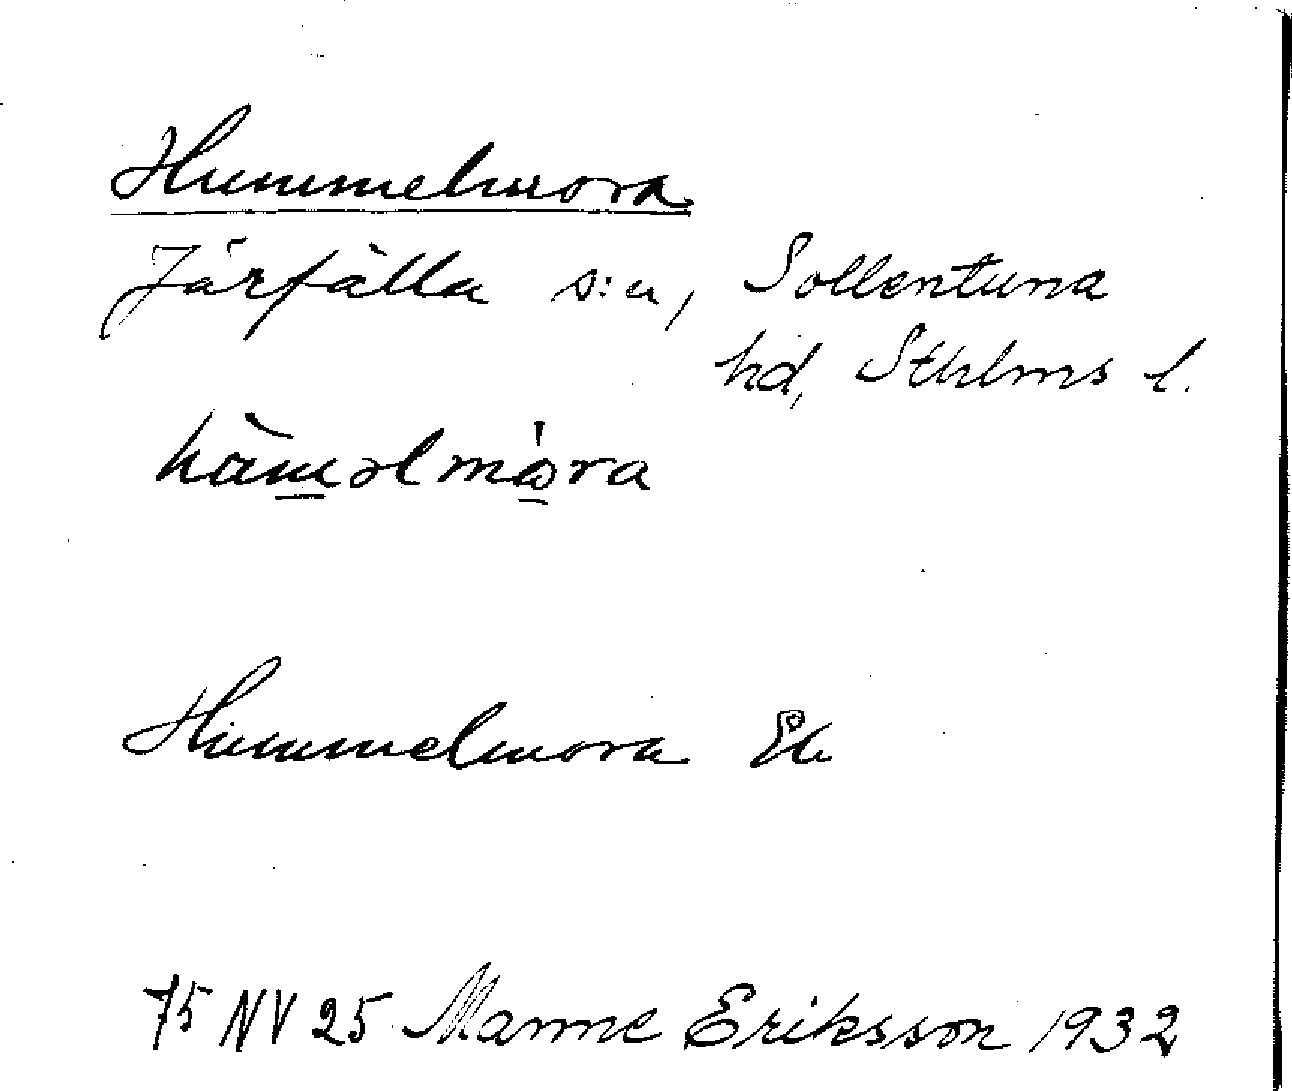 Hummelmora
Järfälla s:n, Sollentuna
hd, Sthlms l.
Hummelmora Ek
75 NV 25 Manne Eriksson 1932